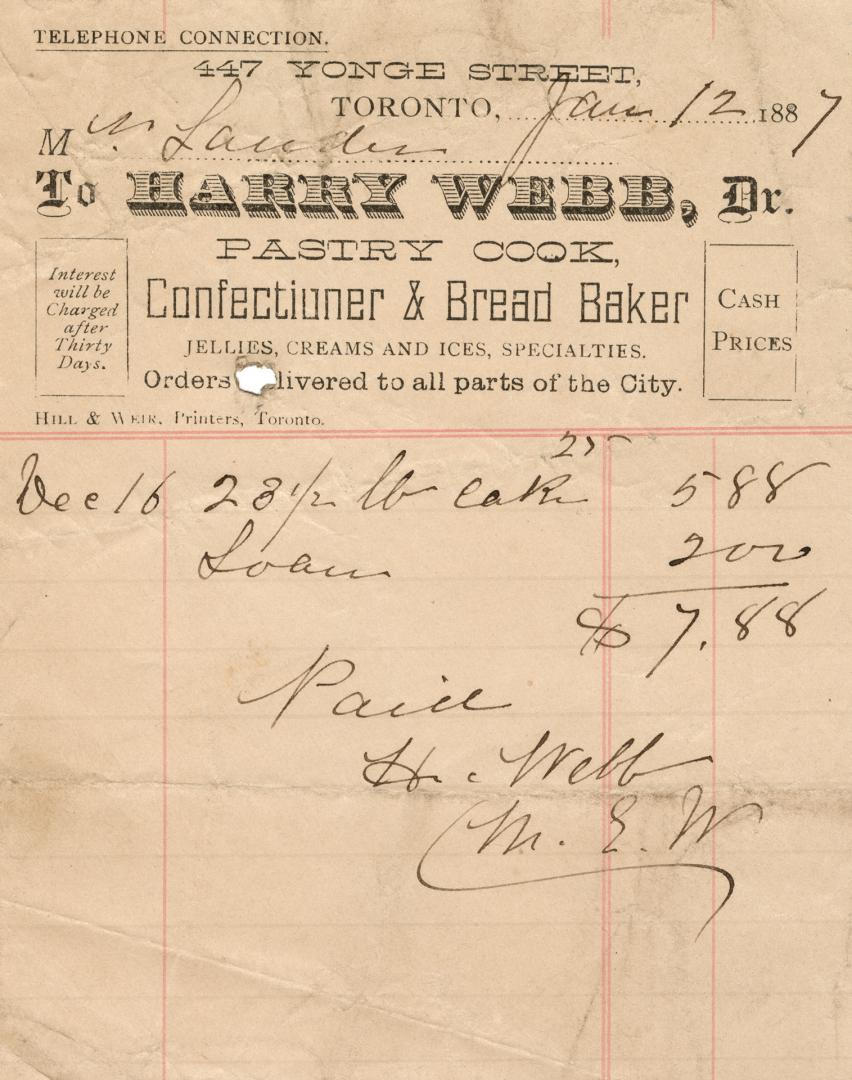 TELEPHONE CONNECTION.
447 YONGE STREET,
TORONTO, Jan 12 1887
Mr
To HARRY WEBB, Dr.
PASTRY COOK,
Interest will be Charged after Thirty Days.
Confectioner & Bread Baker
CASH PRICES
JELLIES, CREAMS AND ICES, SPECIALTIES.
Orders livered to all parts of the City.
HILL & WEIR, Printers, Toronto.
Dec 16 23 1/2 lb cake 25 5 88
Loan 2 00
$ 7.88
Paid
H. Webb
M. E. W